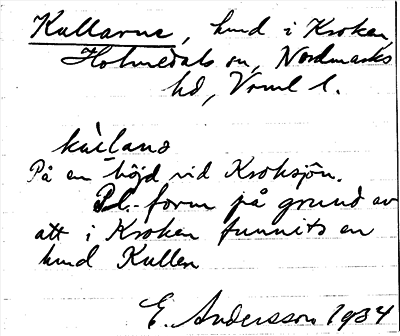 Kullarne, hmd i Kroken,
Holmedals sn, Nordmarks
hd, Vrml l.
kùlland
På en höjd vid Kroksjön.
Pl.-form på grund av
att i Kroken funnits en
hmd Kullen
E. Andersson 1934